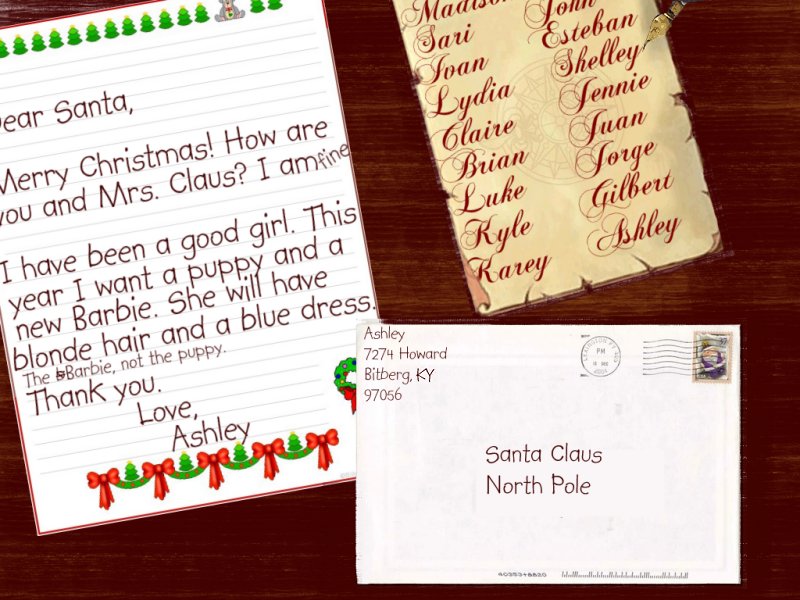 Dear Santa,
Merry Christmas! How are
you and Mrs. Claus? I am fine
I have been a good girl. This
year I want a puppy and a
new Barbie. She will have
blonde hair and a blue dress.
The Barbie, not the puppy.
Thank you.
Love,
Ashley
Madison
Sari
Ivan
Lydia
Claire
Brian
Luke
Kyle
Karey
John
Esteban
Shelley
Jennie
Juan
Jorge
Gilbert
Ashley
Ashley
7274 Howard
Bitberg, KY
97056
PM
37
Santa Claus
North Pole
40353+8820